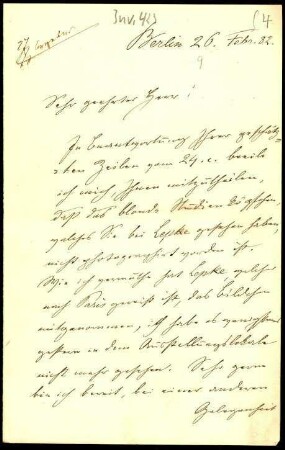 Berlin 26. Febr. 82.
Sehr geehrter Herr!
In Beantwortung Ihrer geschätz-
ten Zeilen vom 24. c. beeile
ich mich, Ihnen mitzutheilen,
daß das blonde Studienköpfchen,
welches Sie bei Lepke gesehen haben,
nicht photographirt worden ist.
Wie ich vermuthe hat Lepke, welcher
nach Paris gereist ist, das Bildchen
mitgenommen, ich habe es wenigstens
gestern in dem Ausstellungslokale
nicht mehr gesehen. Sehr gern
bin ich bereit, bei einer anderen
Gelegenheit